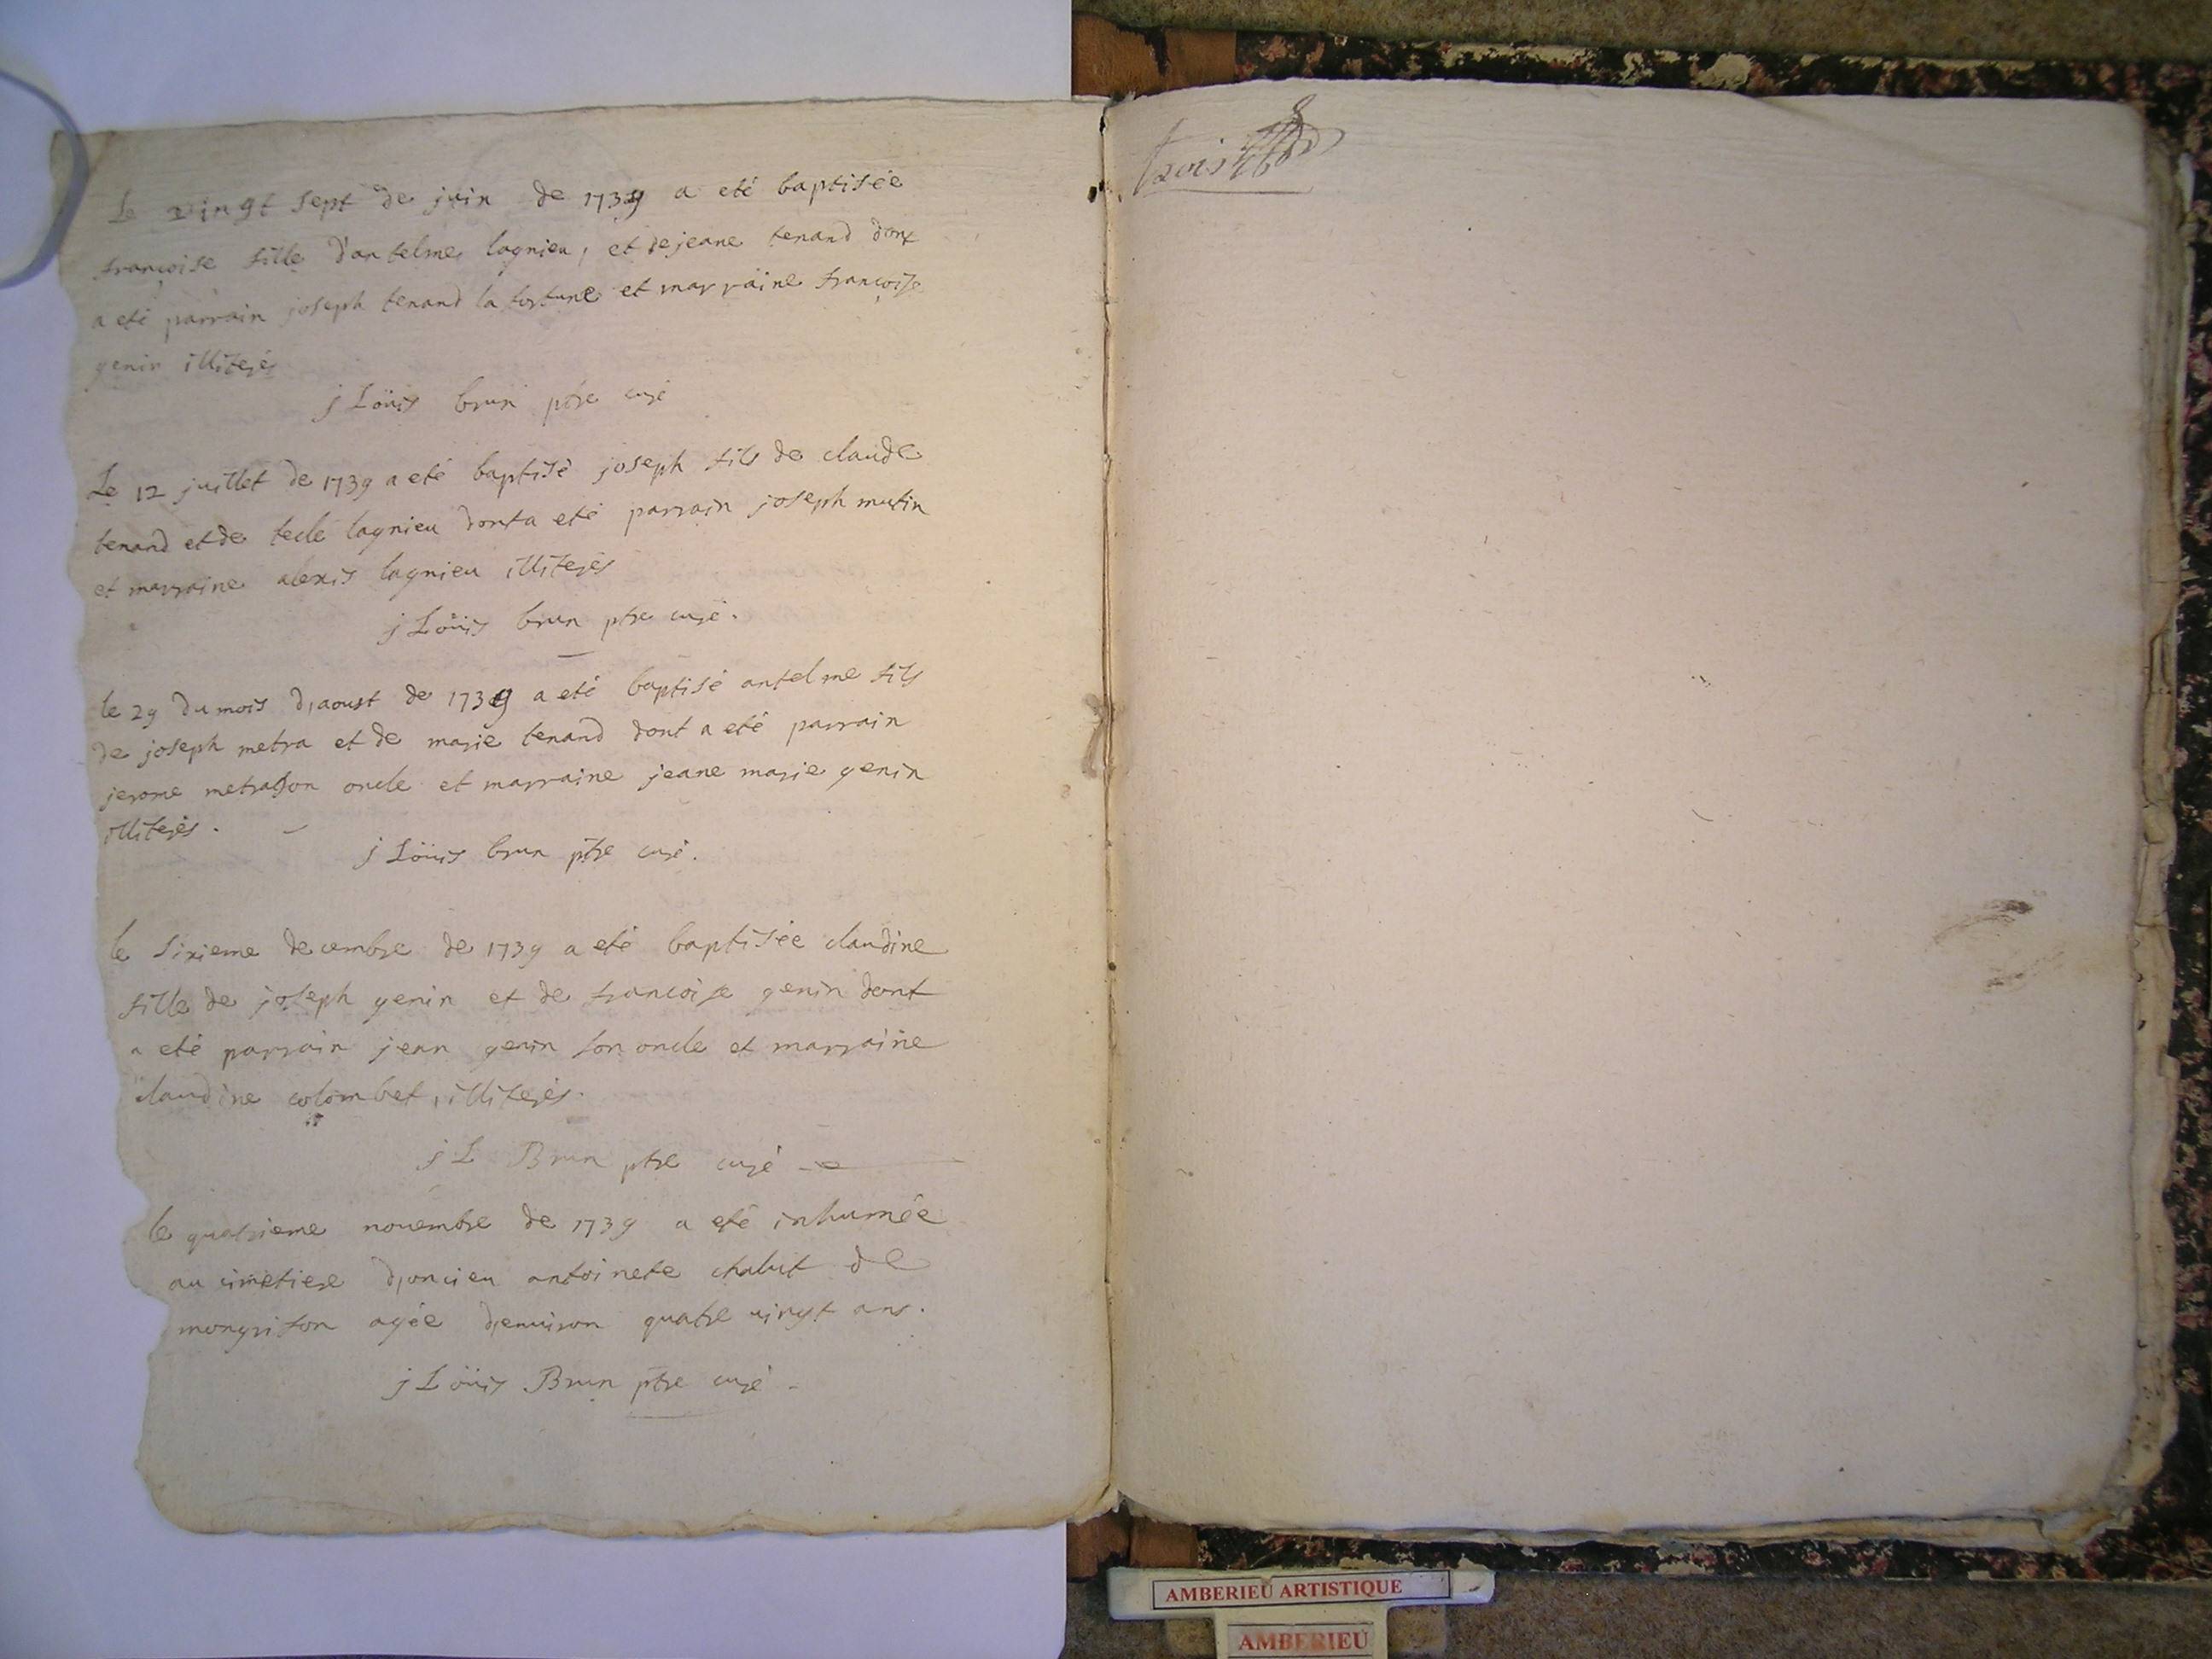 Le vingt sept de juin de 1739 a eté baptisée
francoise fille d'antelme lagnieu, et de jeane tenand dont
a eté parrain joseph tenand la fortune et marraine francoise
genin illiterés
j Loüis brun ptre curé
Le 12 juillet de 1739 a eté baptisé joseph fils de claude
tenand et de tecle lagnieu dont a eté parrain joseph mutin
et marraine alexis lagnieu illiterés
j Loüis brun ptre curé.
le 29 du mois d'aoust de 1739 a eté baptisé antelme fils
de joseph metra et de marie tenand dont a eté parrain
jerome metra son oncle et marraine jeane marie genin
illiterés.
j Loüis brun ptre curé.
le sixieme decembre de 1739 a eté baptisée claudine
fille de joseph genin et de francoise genin dont
a eté parrain jean genin son oncle et marraine
claudine colombet, illiterés.
j L Brun ptre curé
le quatrieme novembre de 1739 a eté inhumée
au cimetiere d'oncieu antoinete chabut de
mongrifon agée d'environ quatre vingt ans.
j Loüis Brun ptre curé
trois
AMBERIEU ARTISTIQUE
AMBERIEU